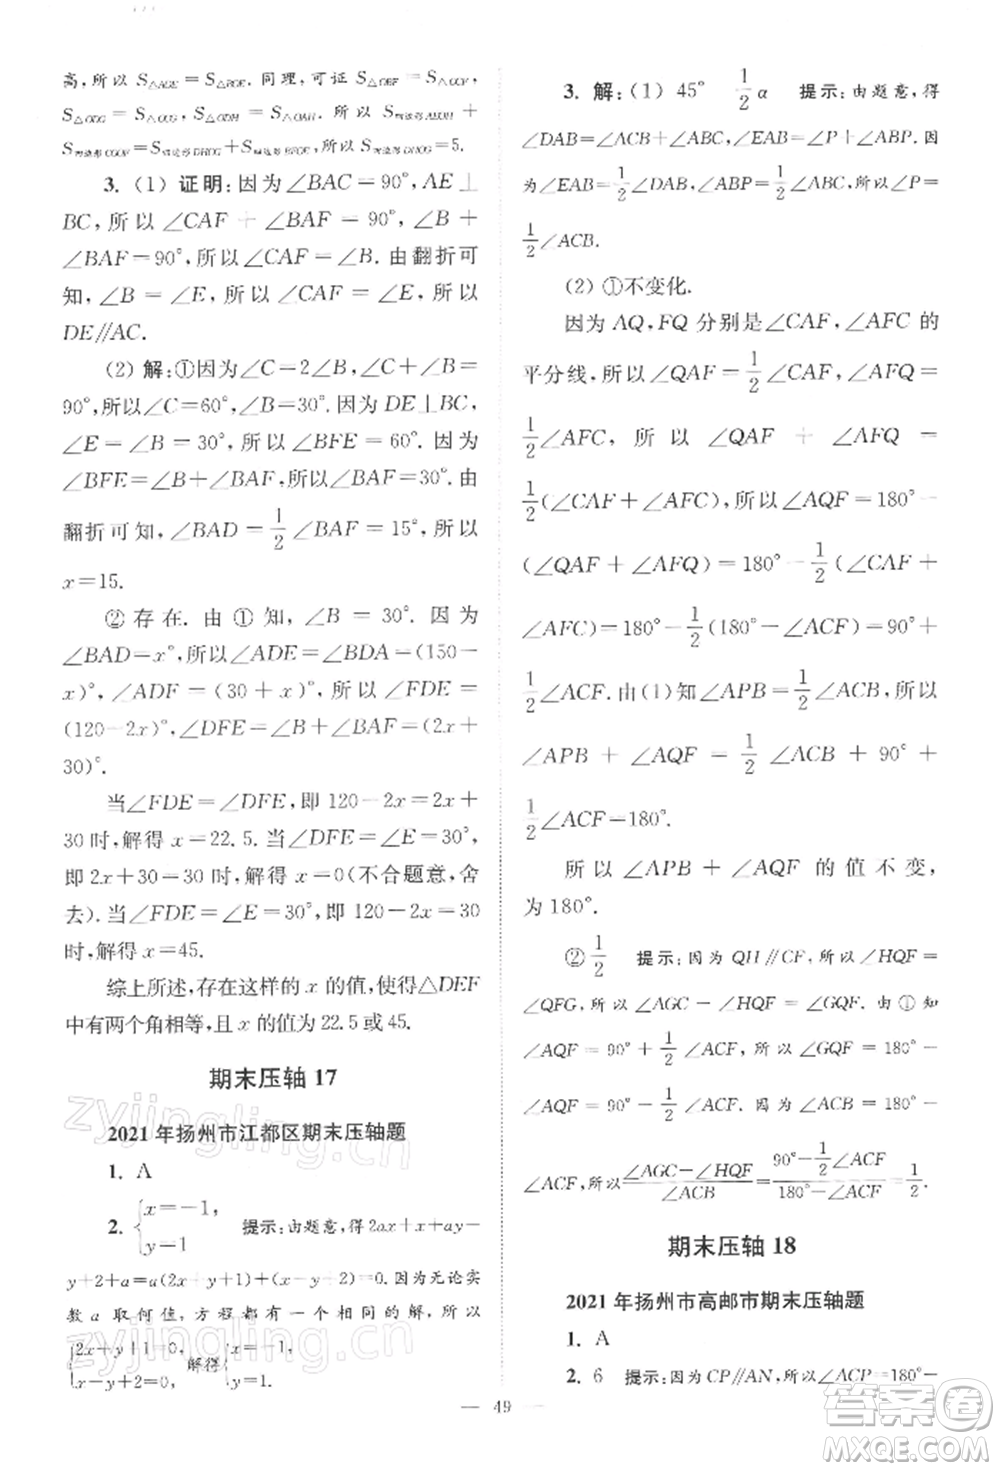 高,所以 S△AGE=S△BGE. 同理,可证 S△OBF=S△OCF,
S△ODG=S△OCG,S△ODH=S△OAH,所以 S四边形AEOH+
S四边形CGOF=S四边形DHOG+S四边形BFOE,所以S四边形DHOG=5.
3. (1) 证明:因为∠BAC=90°,AE⊥
BC,所以∠CAF+∠BAF=90°,∠B+
∠BAF=90°,所以∠CAF=∠B. 由翻折可
知,∠B=∠E,所以∠CAF=∠E,所以
DE∥AC.
(2) 解:①因为∠C-2∠B,∠C+∠B=
90°,所以∠C=60°,∠B=30°. 因为DE⊥BC,
∠E=∠B=30°,所以∠BFE=60°. 因为
∠BFE=∠B+∠BAF,所以∠BAF=30°. 由
翻折可知,∠BAD=1/2∠BAF=15°,所以
x=15.
②存在. 由①知,∠B=30°. 因为
∠BAD=x°,所以∠ADE=∠BDA=(150-
x)°,∠ADF=(30+x)°,所以∠FDE=
(120-2x)°,∠DFE=∠B+∠BAF=(2x+
30)°.
当∠FDE=∠DFE,即120-2x=2x+
30时,解得x=22.5;当∠DFE=∠E=30°,
即2x+30=30时,解得x=0(不合题意,舍
去). 当∠FDE=∠E=30°,即120-2x=30
时,解得x=45.
综上所述,存在这样的x的值,使得△DEF
中有两个角相等,且x的值为22.5或45.
期末压轴 17
2021年扬州市江都区期末压轴题
1. A
2. {x=-1, y=1 提示:由题意,得2ax+x+ay-
y+2+a=a(2x+y+1)+(x-y+2)=0. 因为无论实
数a取何值,方程都有一个相同的解,所以
{2x+y+1=0, x-y+2=0, 解得{x=-1, y=1.
3. 解:(1) 45° 1/2α 提示:由题意,得
∠DAB=∠ACB+∠ABC,∠EAB=∠P+∠ABP. 因
为∠EAB=1/2∠DAB,∠ABP=1/2∠ABC,所以∠P=
1/2∠ACB.
(2) ①不变化.
因为AQ,FQ分别是∠CAF,∠AFC的
平分线,所以∠QAF=1/2∠CAF,∠AFQ=
1/2∠AFC,所以∠QAF+∠AFQ=
1/2(∠CAF+∠AFC),所以∠AQF=180°-
(∠QAF+∠AFQ)=180°-1/2(∠CAF+
∠AFC)=180°-1/2(180°-∠ACF)=90°+
1/2∠ACF. 由(1)知∠APB=1/2∠ACB,所以
∠APB+∠AQF=1/2∠ACB+90°+
1/2∠ACF=180°.
所以∠APB+∠AQF的值不变,
为180°.
②1/2 提示:因为QH∥CF,所以∠HQF=
∠QFG,所以∠AGC-∠HQF=∠GQF. 由①知
∠AQF=90°+1/2∠ACF,所以∠GQF=180°-
∠AQF=90°-1/2∠ACF. 因为∠ACB=180°-
∠ACF,所以(∠AGC-∠HQF)/∠ACB=(90°-1/2∠ACF)/(180°-∠ACF)=1/2.
期末压轴 18
2021年扬州市高邮市期末压轴题
1. A
2. 6 提示:因为CP∥AN,所以∠ACP=180°-
— 49 —
zyjingling.cn
zyjingling.cn
作业帮答案
MXQE.COM